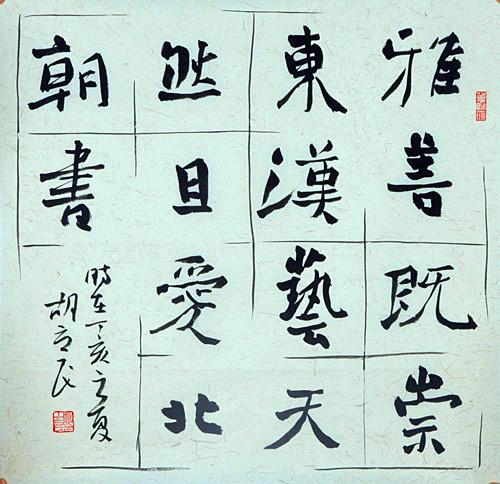 雅善既崇
東漢藝天
然且愛北
朝書
時在丁亥之夏
胡立民